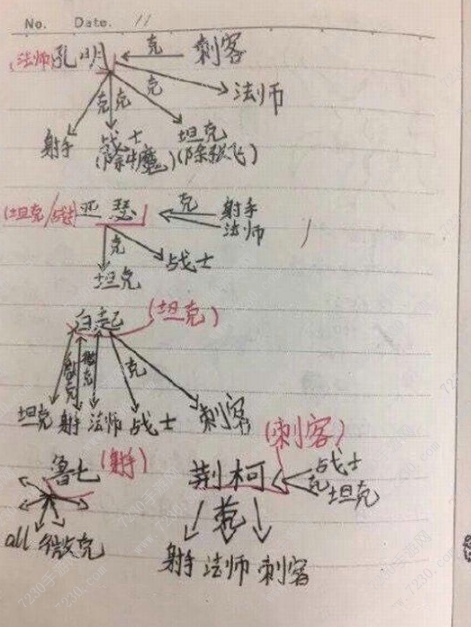 No. Date. 11
(法师)孔明 克 刺客
克 克 克 法师
射手 战士 坦克
(除牛魔) (除张飞)
(坦克/战士) 亚瑟 克 射手
法师
克 战士
坦克
白起 (坦克)
微克 克
坦克 射手 法师 战士 刺客
鲁七 (射手) (刺客)
荆柯 克 战士
坦克
克
all 微克 射手 法师 刺客